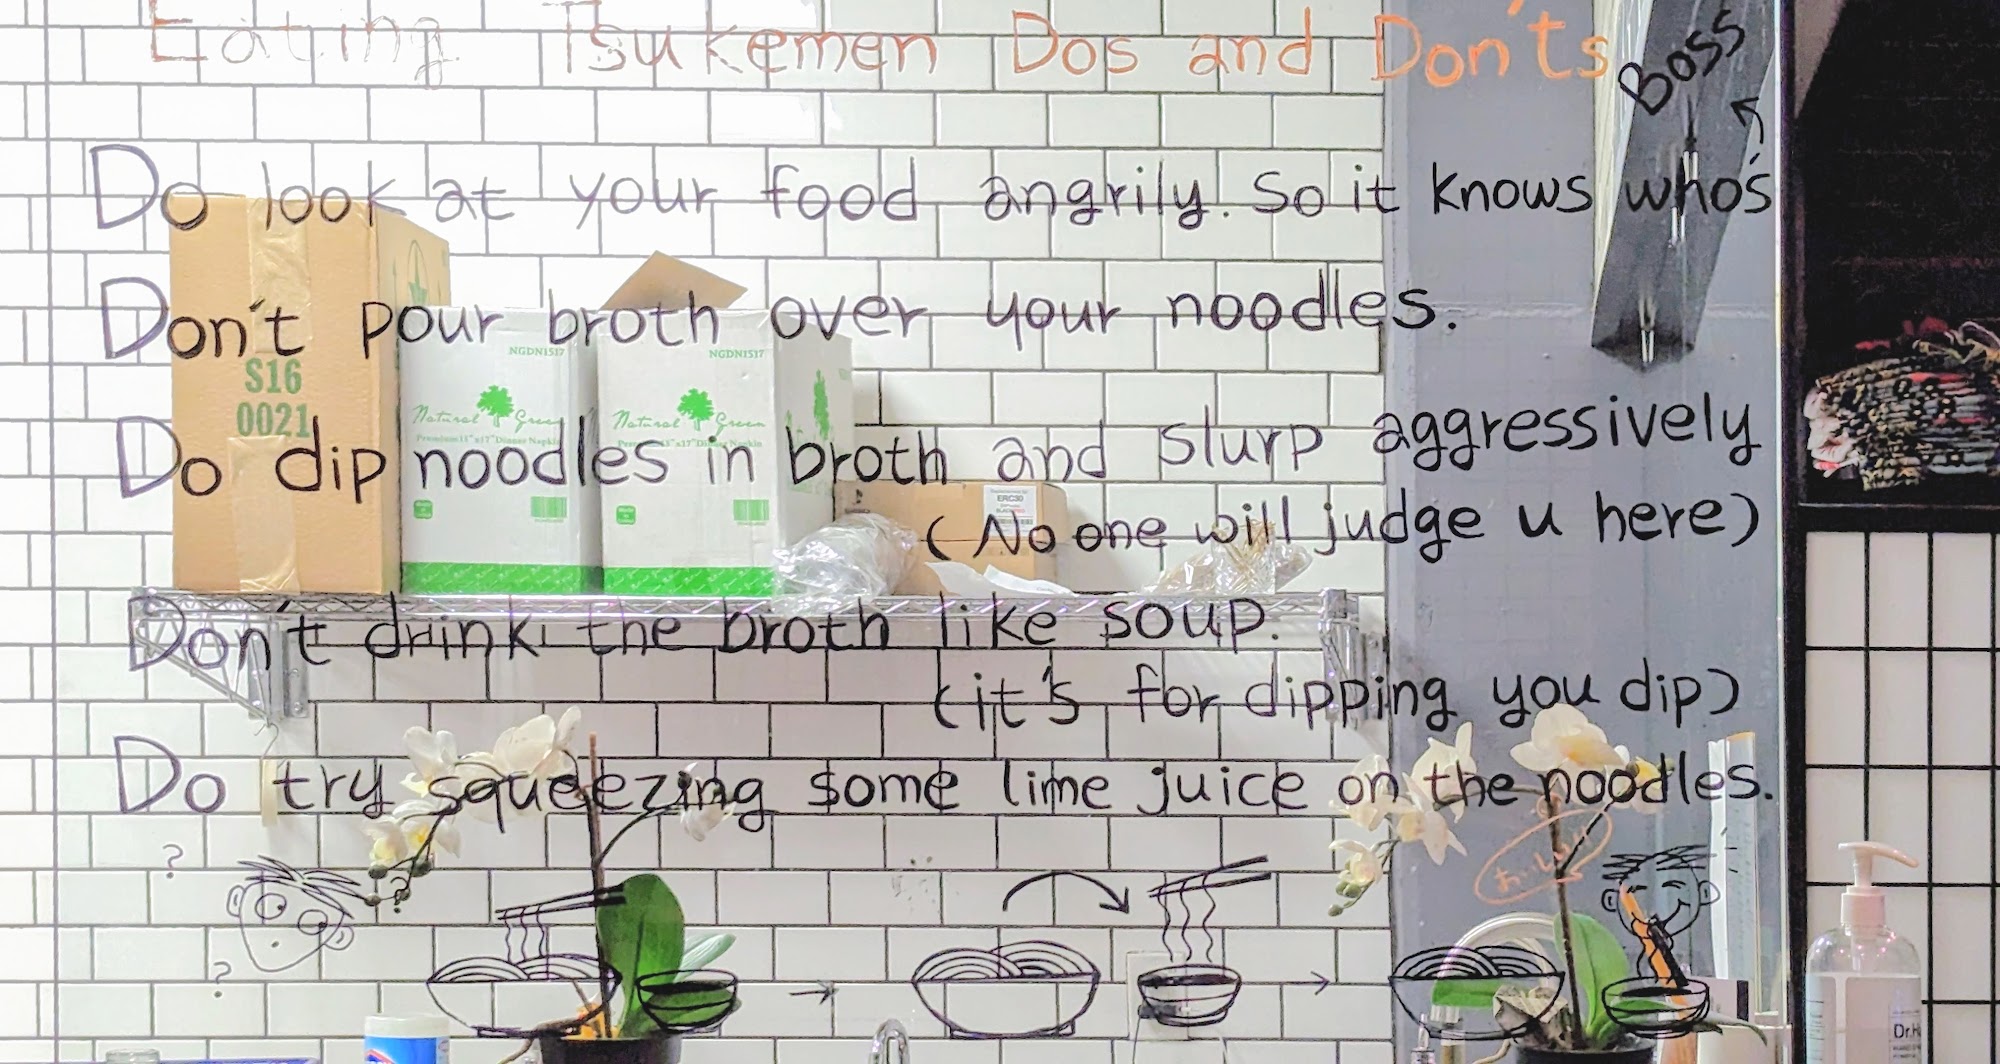 Eating Tsukemen Dos and Don'ts
Do look at your food angrily. So it knows who's
Boss
Don't pour broth over your noodles.
S16
0021
NGDN1517
NGDN1517
Natural Green
Natural Green
Premium 15"x17" Dinner Napkin
Do dip noodles in broth and slurp aggressively
ERC30
(No one will judge u here)
Don't drink the broth like soup.
(it's for dipping you dip)
Do try squeezing some lime juice on the noodles.
?
?
?
おいしい
Dr.